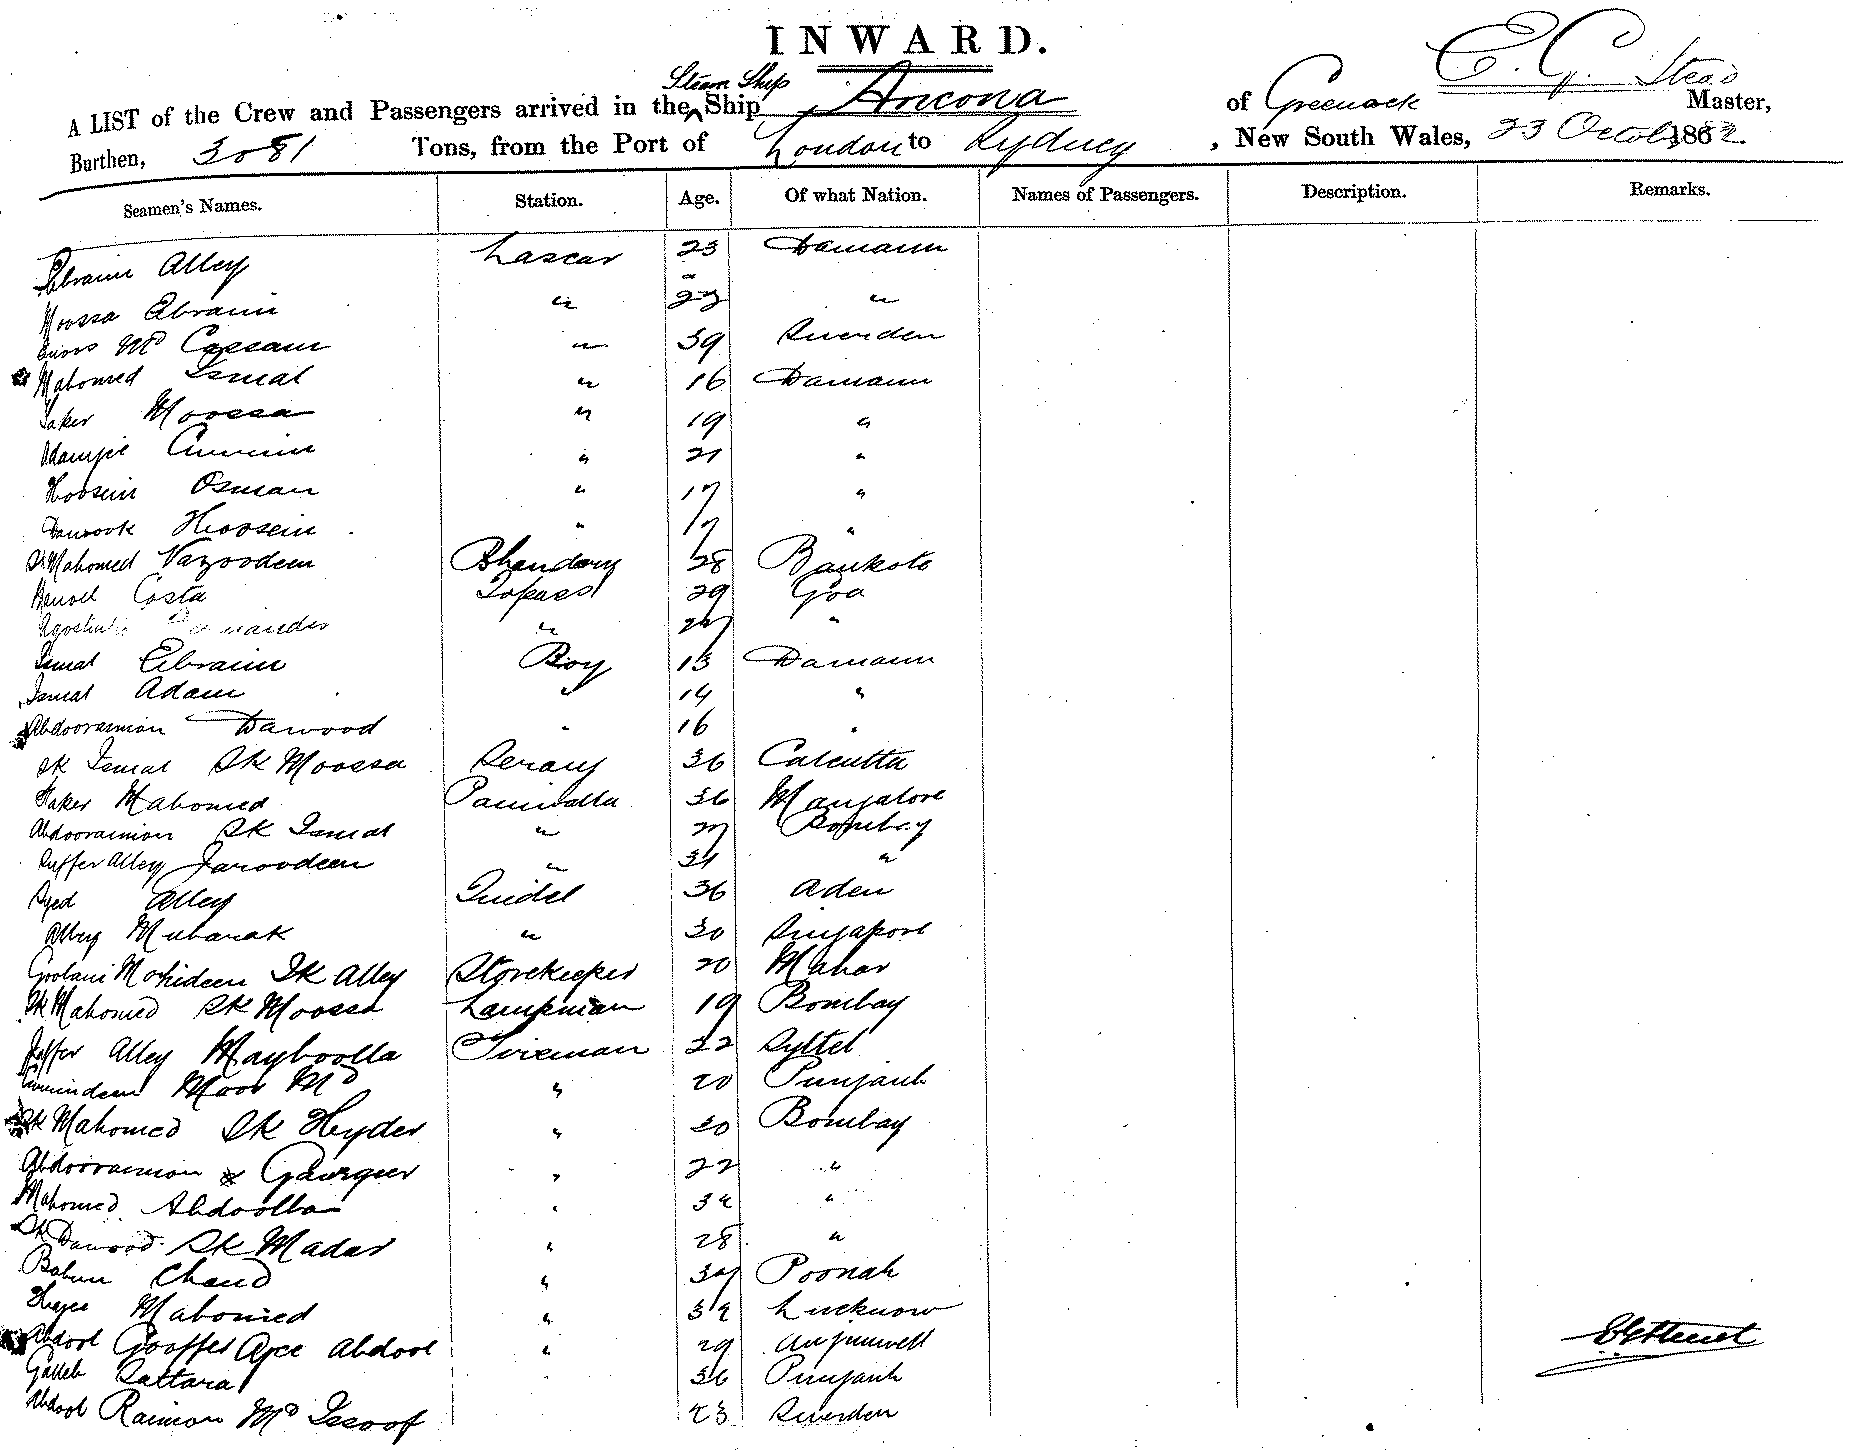 INWARD.
E. G. Stead
Steam Ship
A LIST of the Crew and Passengers arrived in the ^ Ship Ancona of Greenock Master,
Burthen, 3081 Tons, from the Port of London to Sydney, New South Wales, 23 Octob 1882.
Seamen's Names. Station. Age. Of what Nation. Names of Passengers. Description. Remarks.
Ebraim Alley Lascar 23 Damaun
Moossa Ebraim " 27 "
Md Cassam " 39 
Mahomed Ismal " 16 Damaun
Moossa " 19 "
Adamjee " 21 "
Hoosein Osman " 17 "
Dawook Hoosein " 17 "
Sk Mahomed Vazoodeen Bhandary 28 Bankote
Costa Topass 29 Goa
" "
Ismal Ebraim Boy 13 Damaun
Ismal Adam " 14 "
Abdooraimon Dawood " 16 "
Sk Ismal Sk Moossa Serang 36 Calcutta
Mahomed Paniwalla 36 Mangalore
Abdooraimon Sk Ismal " 27 Bombay
Juffer Alley " 31 "
Syed Alley Tindel 36 Aden
Alley Mubarak " 30 Singapore
Goolam Mohideen Sk Alley Storekeeper 20 Mahar
Sk Mahomed Sk Moossa Lampman 19 Bombay
Juffer Alley Mayboolla Fireman 22 Syltet
Moor Md " 20 Punjaub
Sk Mahomed Sk Hyder " 30 Bombay
Abdooraimon " 22 "
Mahomed Abdoolla " 34 "
Sk Dawood Sk Madar " 28 "
Chand " Poonah
Mahomed " 34 Lucknow
Abdool Gooffer Ajee Abdool " 29 Anjinwell
Galleb Sattara 36 Punjaub
Abdool Raimon Md Issoof 23